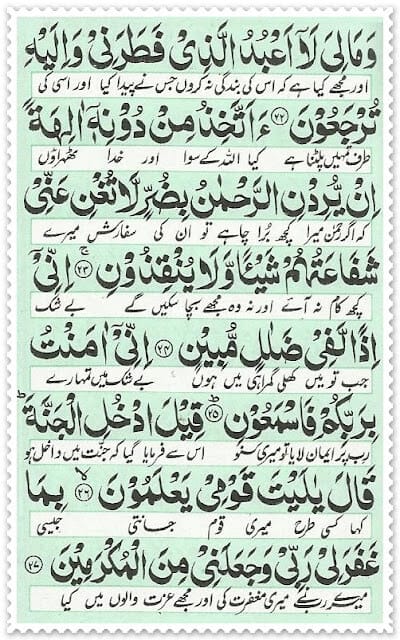 وَمَالِیَ لَاۤ اَعْبُدُ الَّذِیْ فَطَرَنِیْ وَاِلَیْهِ
اور مجھے کیا ہے کہ اس کی بندگی نہ کروں جس نے پیدا کیا اور اسی کی
تُرْجَعُوْنَ ﴿۲۲﴾ ءَاَتَّخِذُ مِنْ دُوْنِهٖۤ اٰلِهَةً
طرف تمہیں پلٹنا ہے کیا اللہ کے سوا اور خدا ٹھہراؤں
اِنْ یُّرِدْنِ الرَّحْمٰنُ بِضُرٍّ لَّا تُغْنِ عَنِّیْ
کہ اگر رحمٰن میرا کچھ بُرا چاہے تو ان کی سفارش میرے
شَفَاعَتُهُمْ شَیْـًٔا وَّلَا یُنْقِذُوْنِ ﴿۲۳﴾ اِنِّیْۤ
کچھ کام نہ آئے اور نہ وہ مجھے بچا سکیں گے بے شک
اِذًا لَّفِیْ ضَلٰلٍ مُّبِیْنٍ ﴿۲۴﴾ اِنِّیْۤ اٰمَنْتُ
جب تو میں کھلی گمراہی میں ہوں بے شک میں تمہارے
بِرَبِّكُمْ فَاسْمَعُوْنِ ﴿۲۵﴾ قِیْلَ ادْخُلِ الْجَنَّةَ ؕ
رب پر ایمان لایا تو میری سنو اس سے فرمایا گیا کہ جنّت میں داخل ہو
قَالَ یٰلَیْتَ قَوْمِیْ یَعْلَمُوْنَ ﴿۲۶﴾ بِمَا
کہا کسی طرح میری قوم جانتی جیسی
غَفَرَلِیْ رَبِّیْ وَجَعَلَنِیْ مِنَ الْمُكْرَمِیْنَ ﴿۲۷﴾
میرے رب نے میری مغفرت کی اور مجھے عزت والوں میں کیا